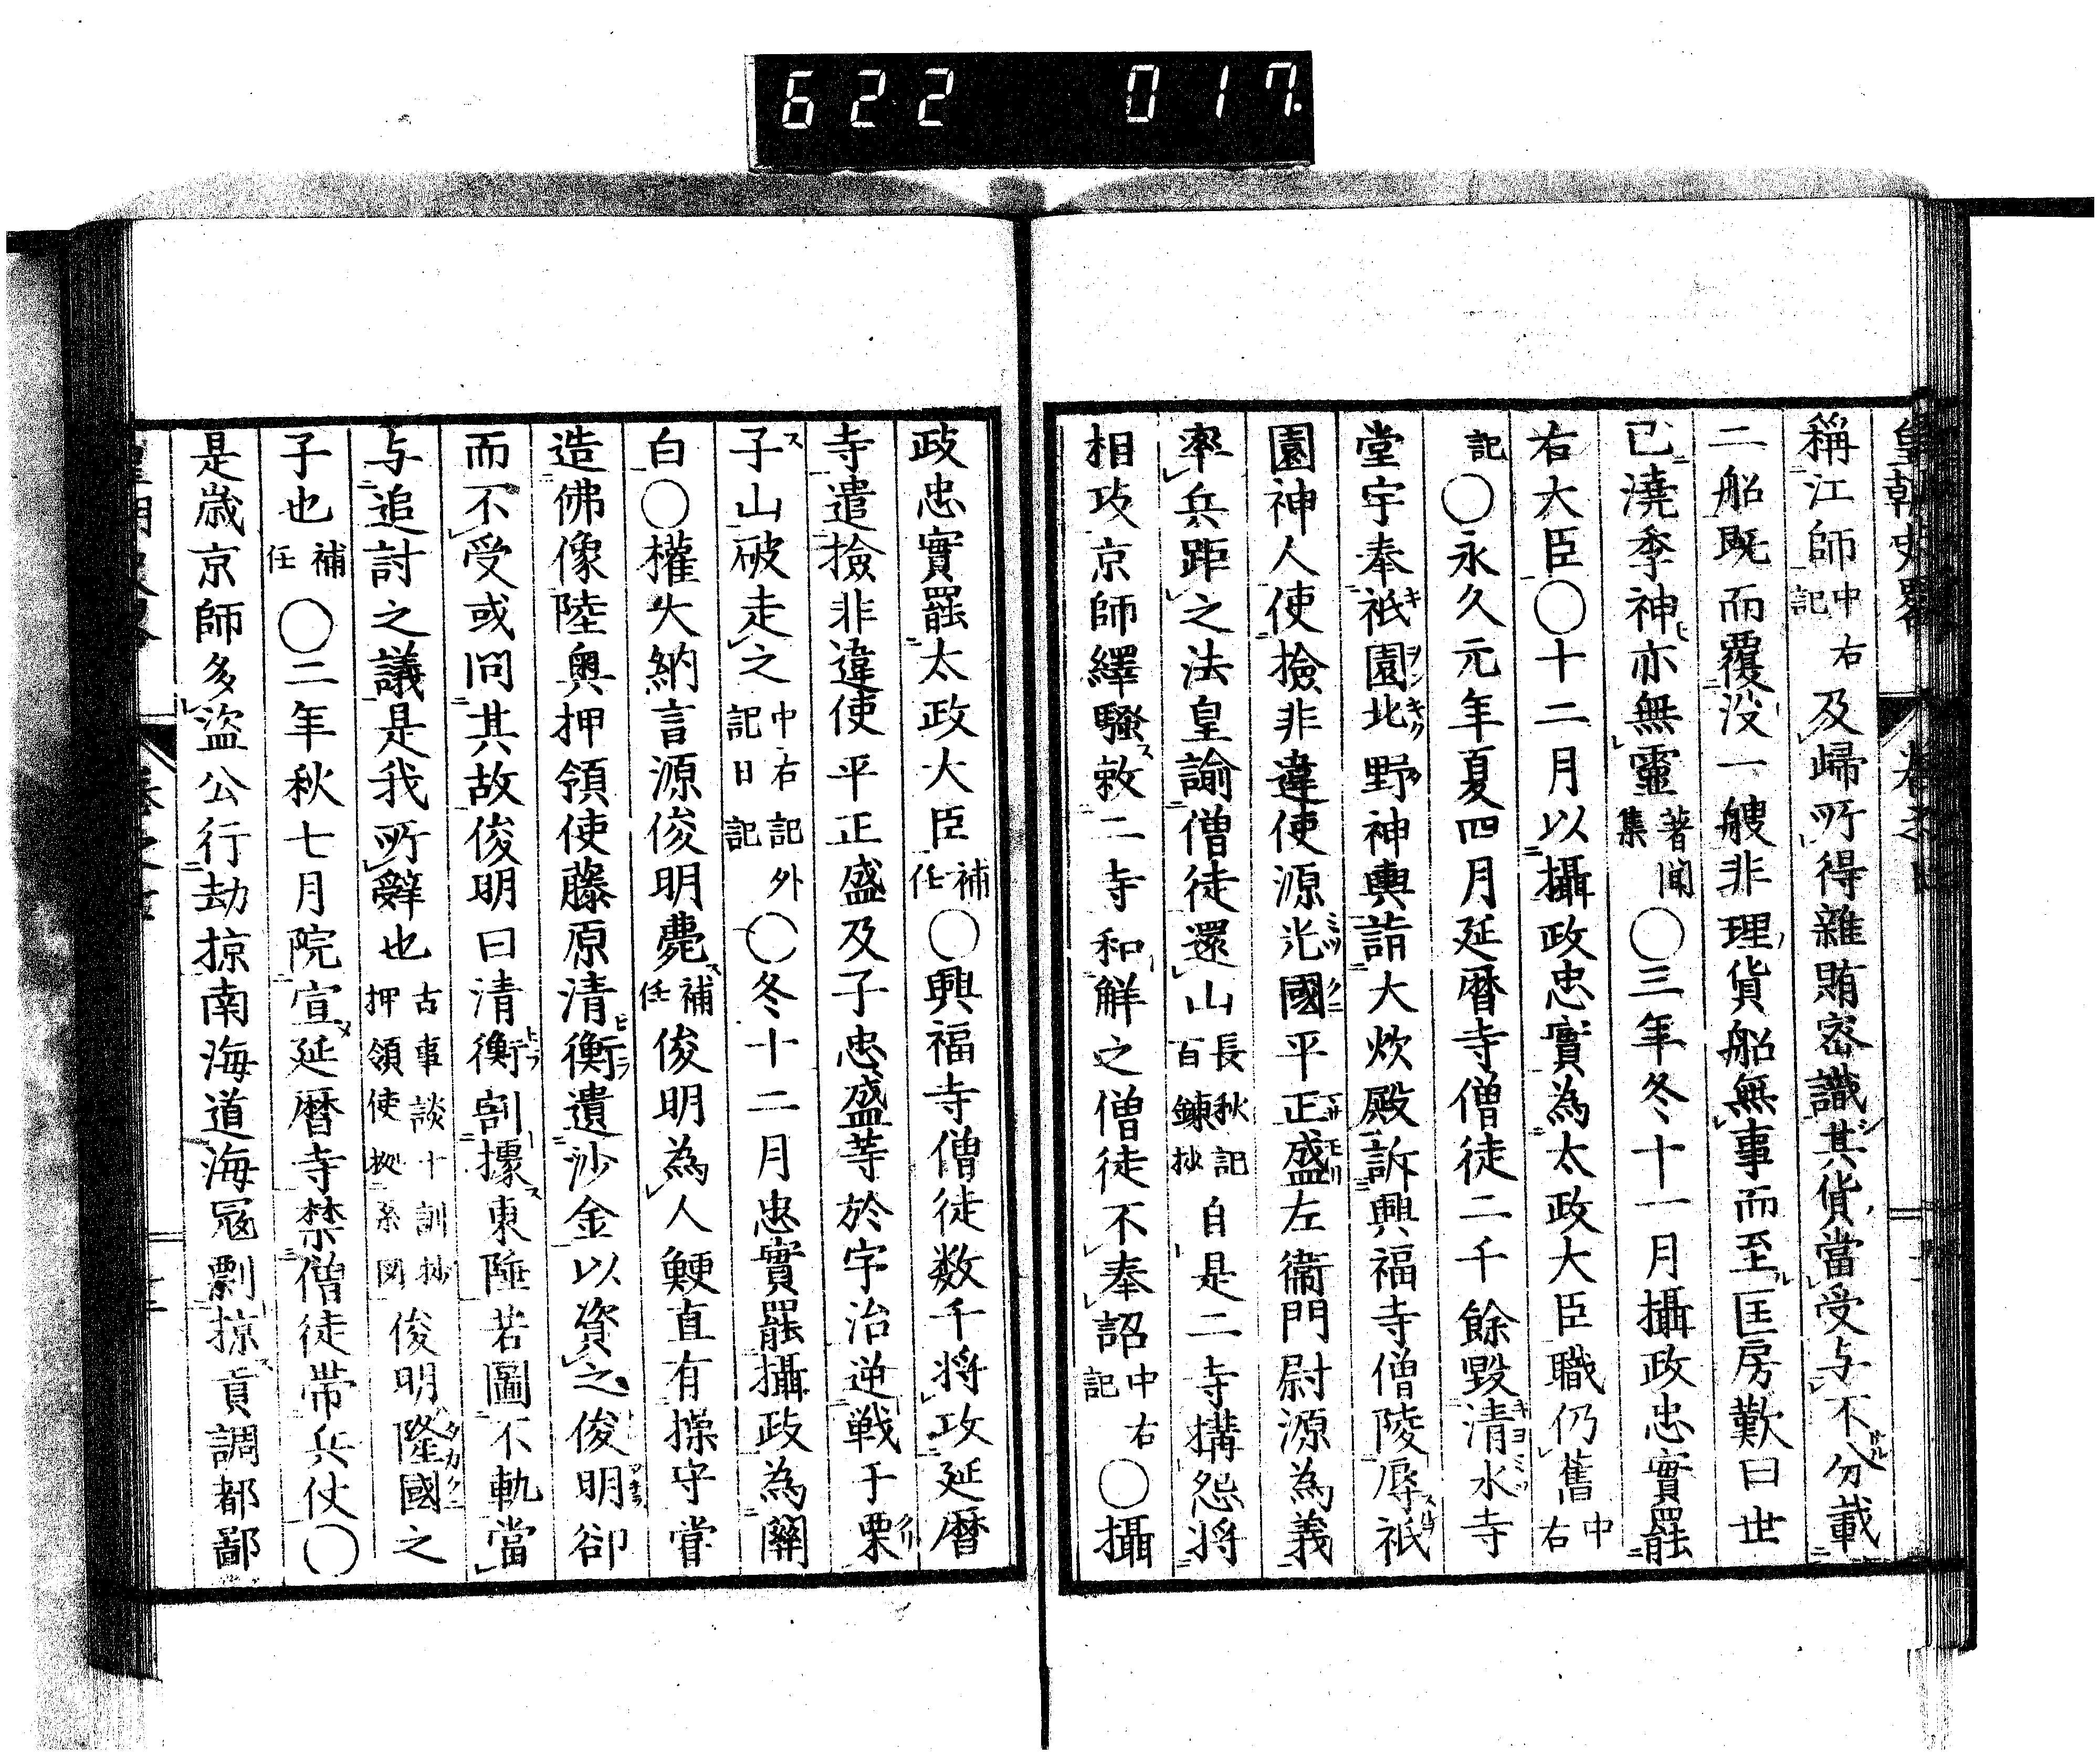 622 017
稱江師中右記及歸所得雜賄密識其貨當受与不分載
二船既而覆没一艘非理貨船無事而至匡房歎曰世
已澆季神亦無靈著聞集○三年冬十一月攝政忠實罷
右大臣○十二月以攝政忠實為太政大臣職仍舊中右
記○永久元年夏四月延暦寺僧徒二千餘毀清水寺
堂宇奉祇園北野神輿詣大炊殿訴興福寺僧陵辱祇
園神人使撿非違使源光國平正盛左衞門尉源為義
率兵距之法皇諭僧徒還山長秋記百錬抄自是二寺搆怨將
相攻京師繹騷敕二寺和解之僧徒不奉詔中右記○攝
政忠實罷太政大臣補任○興福寺僧徒数千将攻延暦
寺遣撿非違使平正盛及子忠盛等於宇治逆戦于栗
子山破走之中右記外記日記○冬十二月忠實罷攝政為關
白○權大納言源俊明薨補任俊明為人鯁直有操守嘗
造佛像陸奥押領使藤原清衡遺沙金以資之俊明卻
而不受或問其故俊明曰清衡割據東陲若圖不軌當
与追討之議是我所辭也古事談十訓抄押領使拠系図俊明隆國之
子也補任○二年秋七月院宣延暦寺禁僧徒帯兵仗○
是歳京師多盜公行劫掠南海道海冦剽掠貢調都鄙